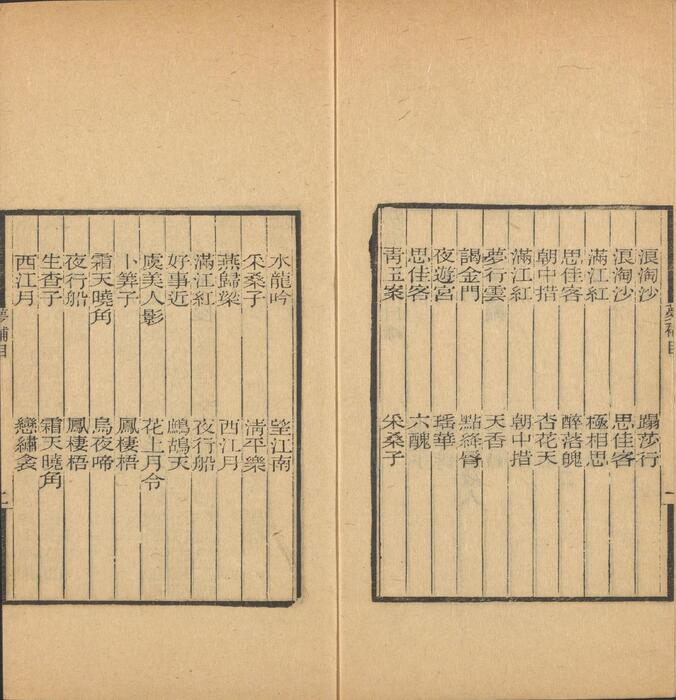 浪淘沙　蹋莎行
浪淘沙　思佳客
滿江紅　極相思
思佳客　醉落魄
朝中措　杏花天
滿江紅　朝中措
夢行雲　天香
謁金門　點絳脣
夜遊宮　瑤華
思佳客　六醜
青玉案　采桑子
夢補目　一
水龍吟　望江南
采桑子　清平樂
燕歸梁　西江月
滿江紅　夜行船
好事近　鷓鴣天
虞美人影　花上月令
卜筭子　鳳棲梧
霜天曉角　烏夜啼
夜行船　鳳棲梧
生查子　霜天曉角
西江月　戀繡衾
夢補目